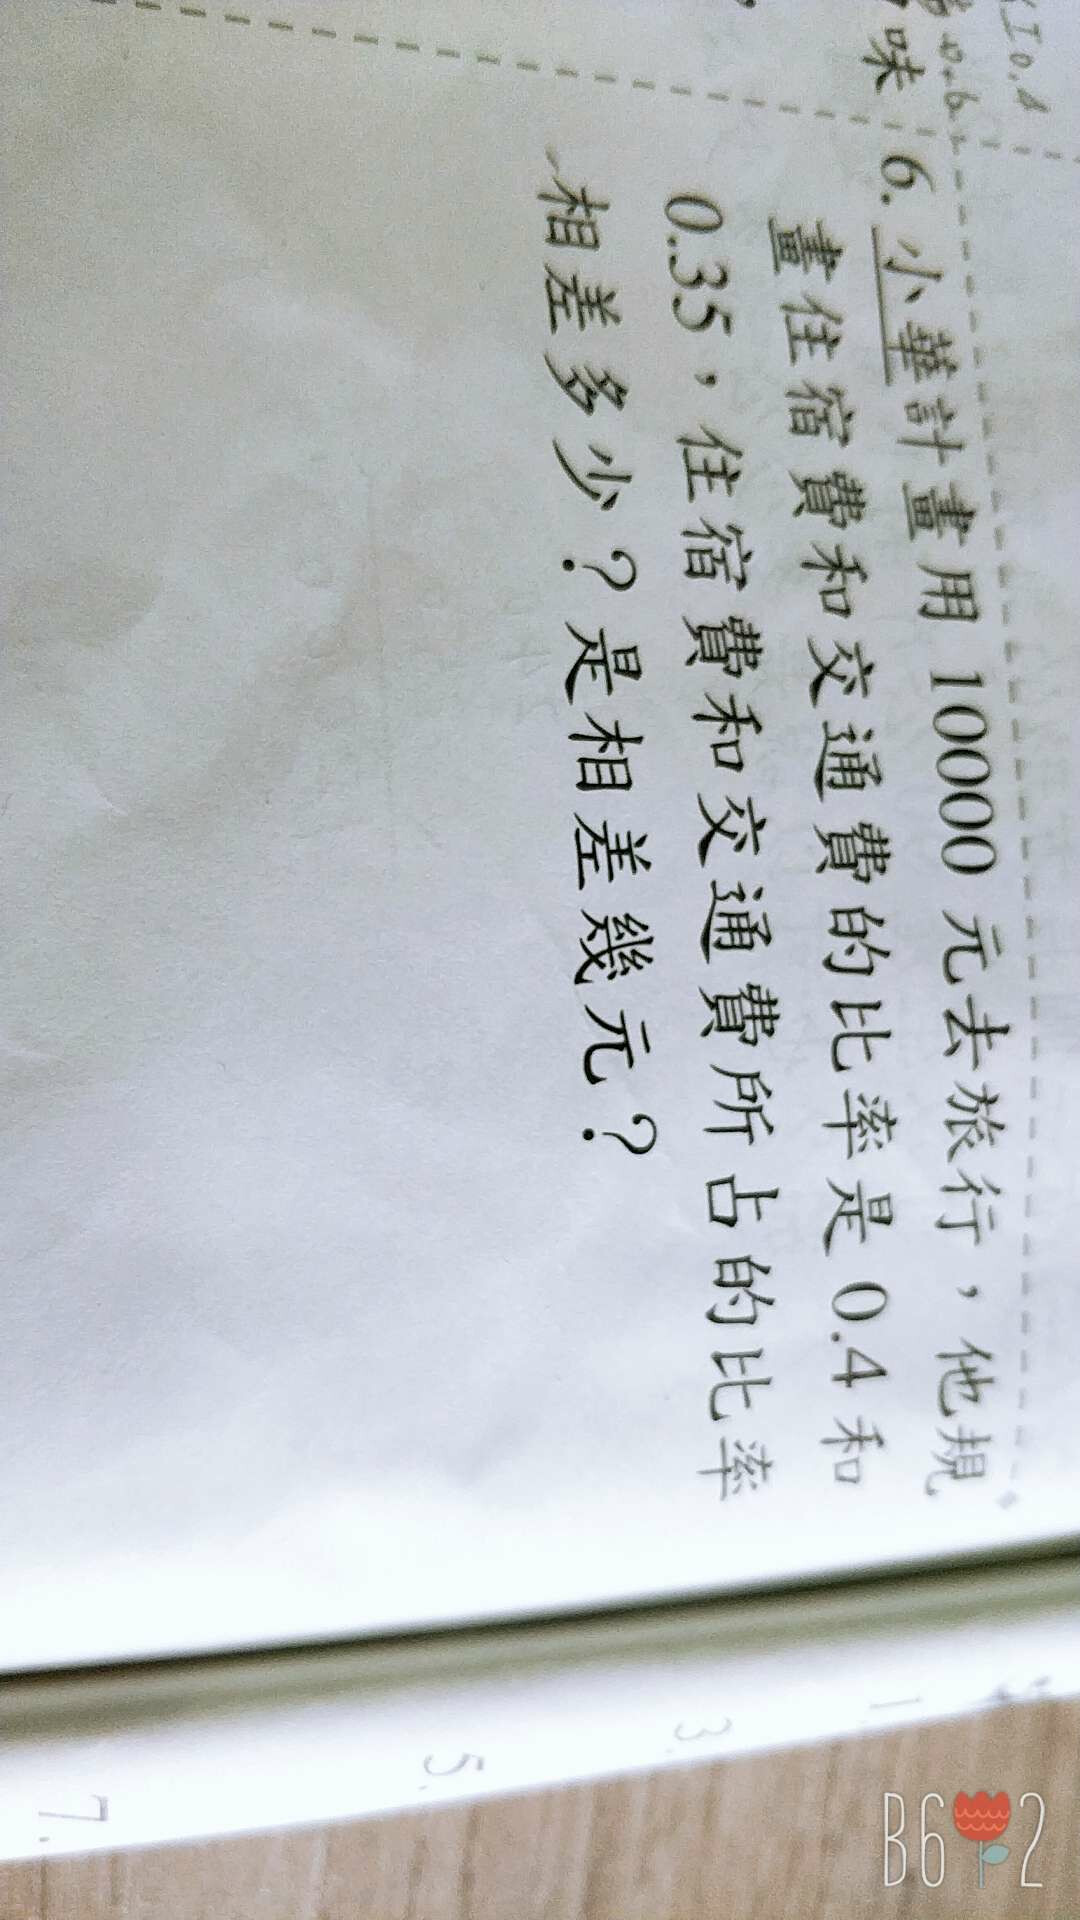 味
6. 小華計畫用 10000 元去旅行，他規
畫住宿費和交通費的比率是 0.4 和
0.35，住宿費和交通費所占的比率
相差多少？是相差幾元？
1.
3.
5.
7.
B612